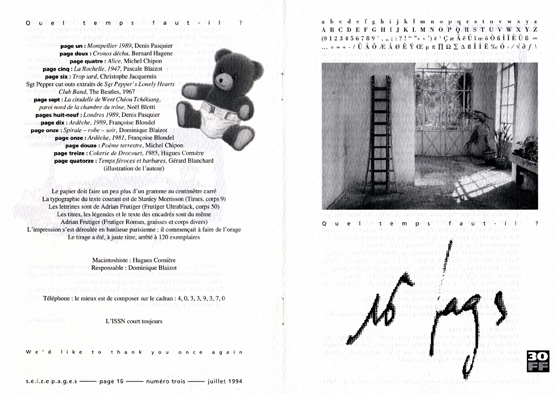 Quel temps faut-il ?
page un : Montpellier 1989, Denis Pasquier
page deux : Cronos dèchu, Bernard Hagene
page quatre : Alice, Michel Chipon
page cinq : La Rochelle, 1947, Pascale Blaizot
page six : Trop tard, Christophe Jacquemin
Sgt Pepper cut outs extraits de Sgt Pepper's Lonely Hearts
Club Band, The Beatles, 1967
page sept : La citadelle de West Chéou Tchékiang,
paroi nord de la chambre du trône, Noël Blotti
pages huit-neuf : Londres 1989, Denis Pasquier
page dix : Ardèche, 1989, Françoise Blondel
page onze : Spirale – robe – soir, Dominique Blaizot
page onze : Ardèche, 1981, Françoise Blondel
page douze : Poème terrestre, Michel Chipon
page treize : Cokerie de Drocourt, 1985, Hugues Cornière
page quatorze : Temps féroces et barbares, Gérard Blanchard
(illustration de l'auteur)
Le papier doit faire un peu plus d'un gramme au centimètre carré
La typographie du texte courant est de Stanley Morrisson (Times, corps 9)
Les lettrines sont de Adrian Frutiger (Frutiger Ultrablack, corps 50)
Les titres, les légendes et le texte des encadrés sont du même
Adrian Frutiger (Frutiger Roman, graisses et corps divers)
L'impression s'est déroulée en banlieue parisienne : il commençait à faire de l'orage
Le tirage a été, à juste titre, arrêté à 120 exemplaires
Macintoshiste : Hugues Cornière
Responsable : Dominique Blaizot
Téléphone : le mieux est de composer sur le cadran : 4, 0, 3, 3, 9, 3, 7, 0
L'ISSN court toujours
We'd like to thank you once again
s.e.i.z.e.p.a.g.e.s — page 16 — numéro trois — juillet 1994
a b c d e f g h i j k l m n o p q r s t u v w x y z
A B C D E F G H I J K L M N O P Q R S T U V W X Y Z
Quel temps faut-il ?
16 pags
30
FF